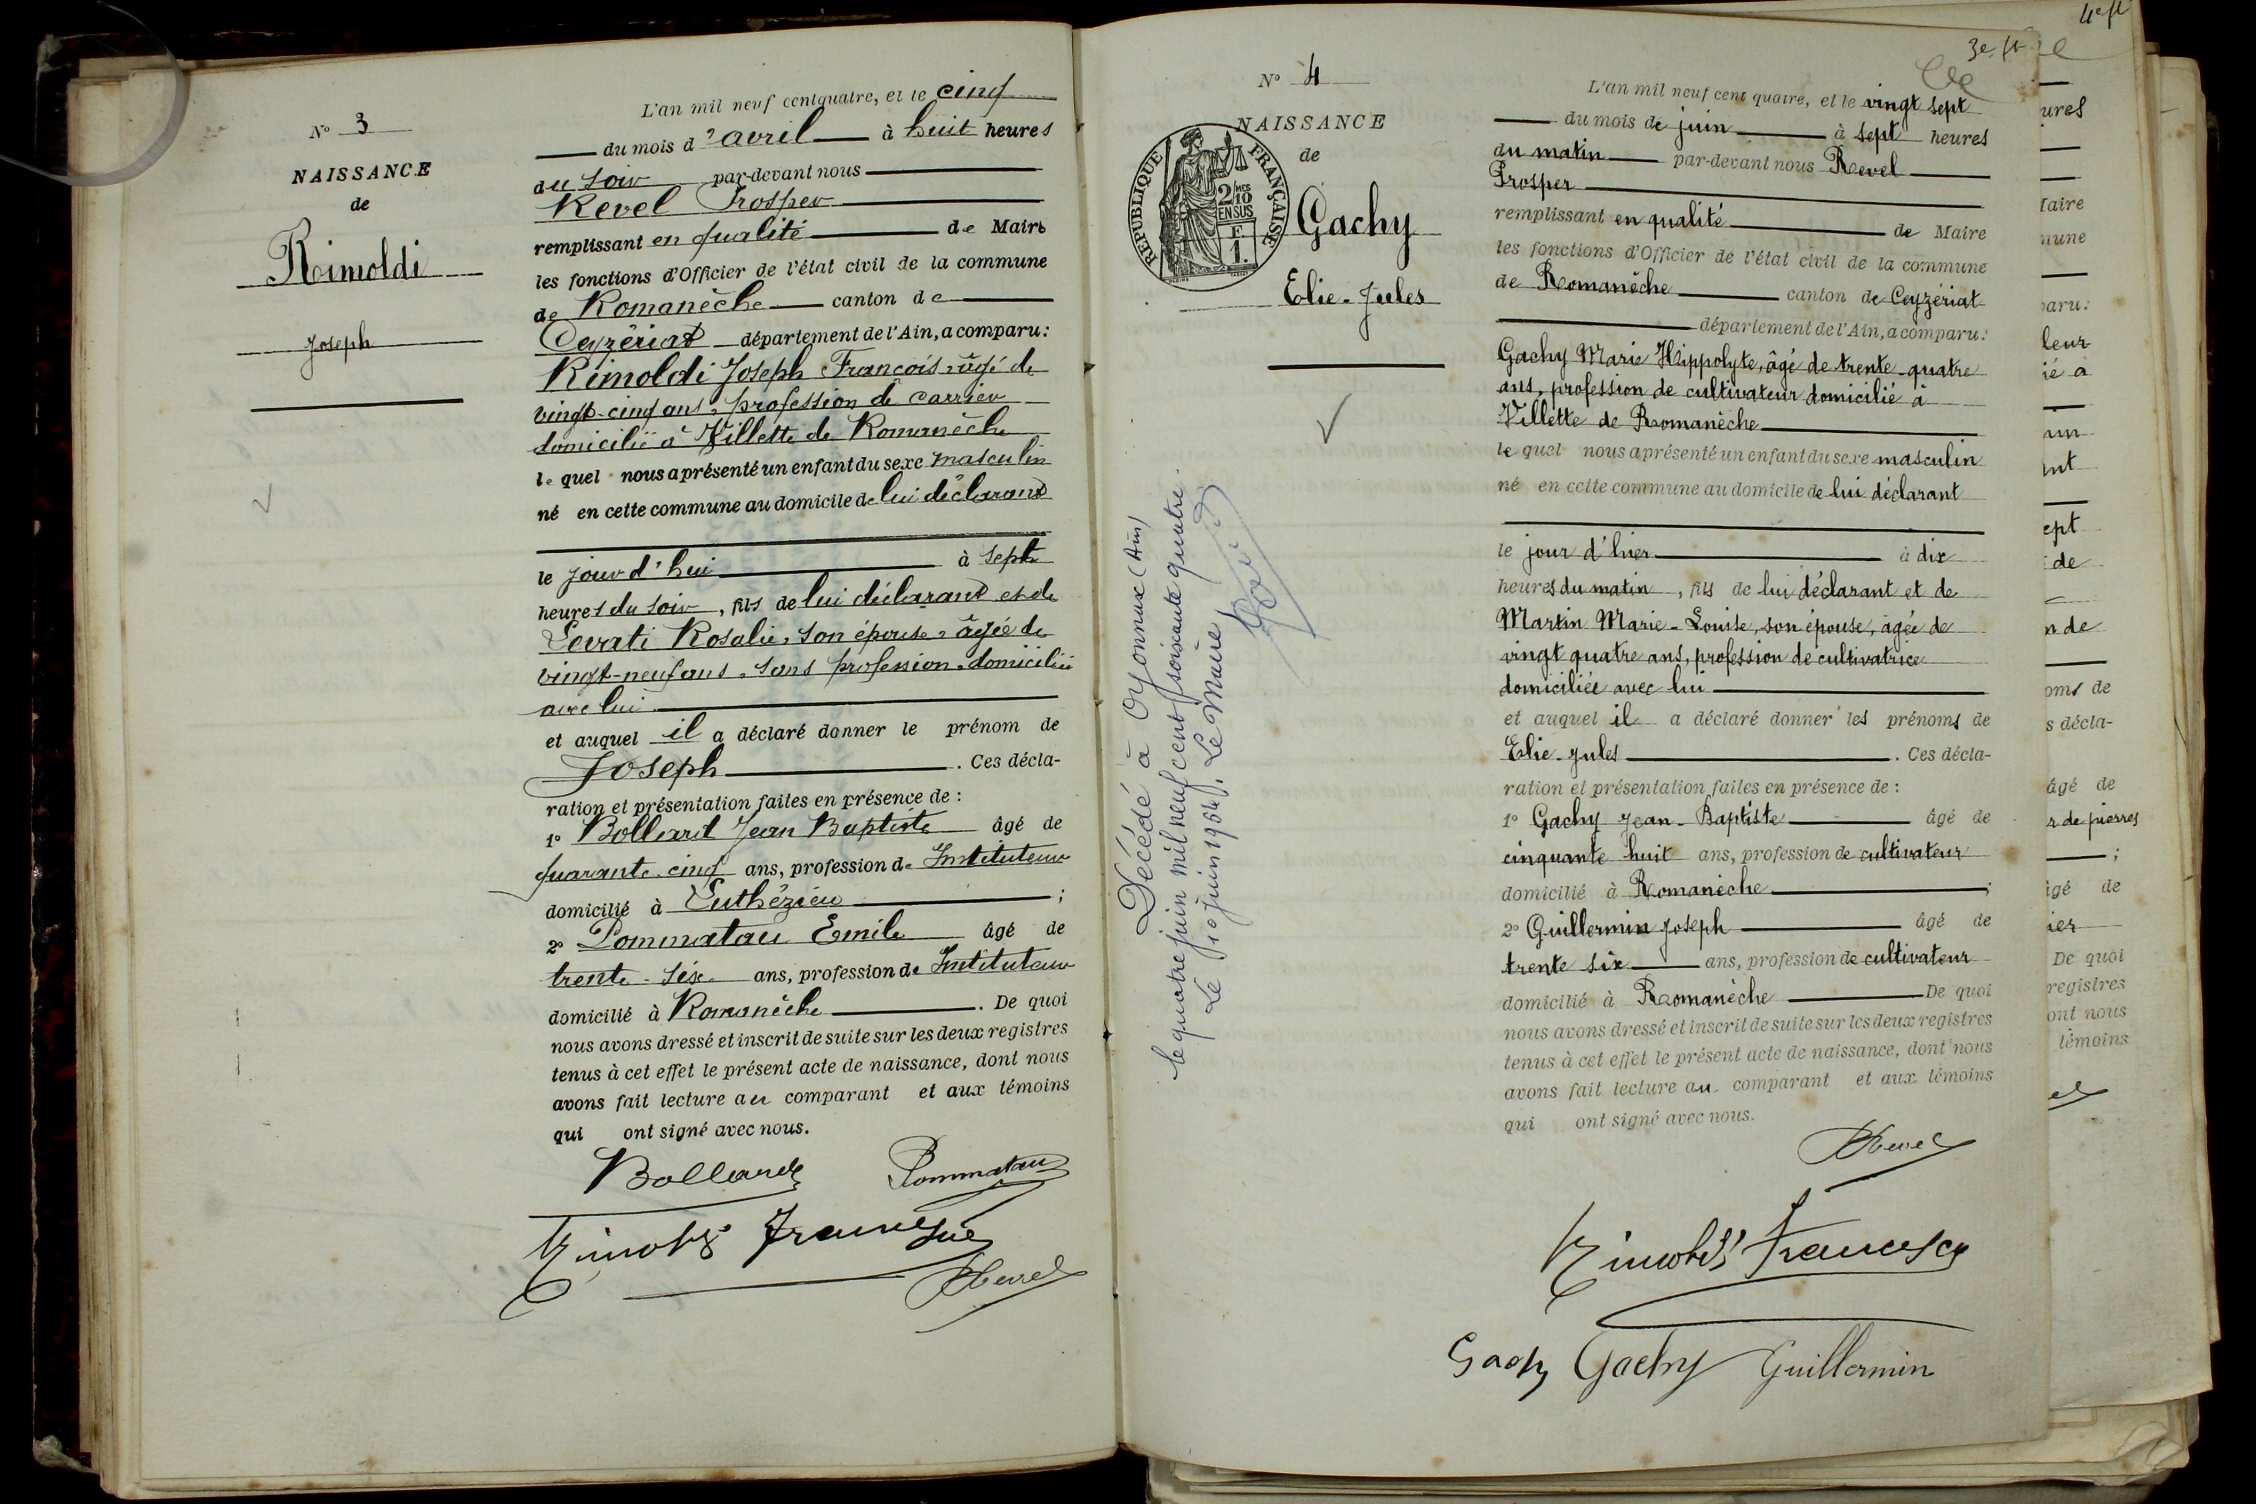 N° 3
NAISSANCE
de
Rimoldi
Joseph
L'an mil neuf cent quatre, et le cinq
du mois d'avril à huit heures
du soir par-devant nous
Revel Prosper
remplissant en qualité de Maire
les fonctions d'Officier de l'état civil de la commune
de Romanèche canton de
Ceyzériat département de l'Ain, a comparu:
Rimoldi Joseph François, âgé de
vingt-cinq ans, profession de carrier
domicilié à Villette de Romanèche
lequel nous a présenté un enfant du sexe masculin
né en cette commune au domicile de lui déclarant
le jour d'hui à sept
heures du soir, fils de lui déclarant et de
Levati Rosalie, son épouse, âgée de
vingt-neuf ans, sans profession, domiciliée
avec lui
et auquel il a déclaré donner le prénom de
Joseph. Ces décla-
ration et présentation faites en présence de :
1° Bollard Jean Baptiste âgé de
quarante-cinq ans, profession de Instituteur
domicilié à Cuthézieu ;
2° Pommatau Emile âgé de
trente-six ans, profession de Instituteur
domicilié à Romanèche. De quoi
nous avons dressé et inscrit de suite sur les deux registres
tenus à cet effet le présent acte de naissance, dont nous
avons fait lecture au comparant et aux témoins
qui ont signé avec nous.
Bollard Pommatau
Rimoldi Francesco
PRevel
3e ft
N° 4
NAISSANCE
de
REPUBLIQUE FRANÇAISE
2/10 MES
EN SUS
F.
1.
Gachy
Elie-Jules
Décédé à Oyonnax (Ain)
le quatre juin mil neuf cent soixante quatre.
Le 10 juin 1964. Le Maire
L'an mil neuf cent quatre, et le vingt sept
du mois de juin à sept heures
du matin par-devant nous Revel
Prosper
remplissant en qualité de Maire
les fonctions d'Officier de l'état civil de la commune
de Romanèche canton de Ceyzériat
département de l'Ain, a comparu:
Gachy Marie Hippolyte, âgé de trente-quatre
ans, profession de cultivateur domicilié à
Villette de Romanèche
lequel nous a présenté un enfant du sexe masculin
né en cette commune au domicile de lui déclarant
le jour d'hier à dix
heures du matin, fils de lui déclarant et de
Martin Marie-Louise, son épouse, âgée de
vingt quatre ans, profession de cultivatrice
domiciliée avec lui
et auquel il a déclaré donner les prénoms de
Elie-Jules. Ces décla-
ration et présentation faites en présence de :
1° Gachy Jean-Baptiste âgé de
cinquante huit ans, profession de cultivateur
domicilié à Romanèche ;
2° Guillermin Joseph âgé de
trente six ans, profession de cultivateur
domicilié à Romanèche De quoi
nous avons dressé et inscrit de suite sur les deux registres
tenus à cet effet le présent acte de naissance, dont nous
avons fait lecture au comparant et aux témoins
qui ont signé avec nous.
PRevel
Rimoldi Francesco
Gachy Gachy Guillermin
4e ft
ures
Maire
mune
paru:
leur
ié à
ant
sept
de
n de
oms de
s décla-
âgé de
r de pierres
;
âgé de
ier
De quoi
registres
ont nous
témoins